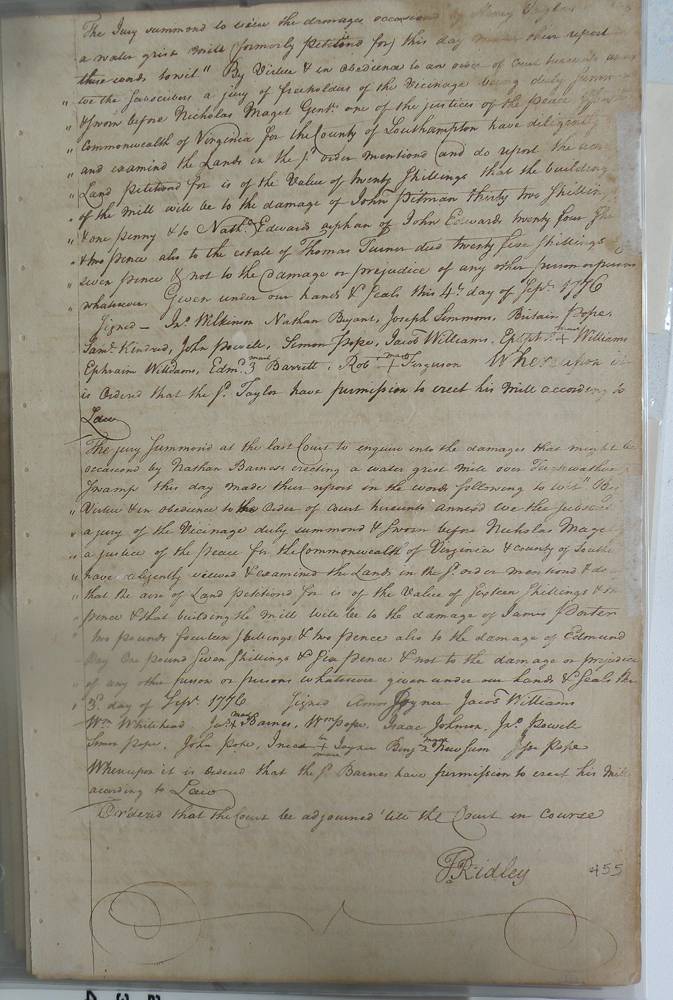 The Jury summond to view the damages occasiond by Henry Taylor
a water grist mill (formerly petitiond for) this day their report
these words towit " By Virtue & in obedience to an order of Court hereunto
" we the Subscribers a jury of freeholders of the Vicinage being duly summond
" & sworn before Nicholas Maget Gent. one of the justices of the peace
" Commonwealth of Virginia for the County of Southampton have diligently
" and examind the Lands in the sd. order mentiond (and do report the acre
" Land petitiond for is of the Value of twenty shillings that the building
" of the mill will be to the damage of John Pitman thirty two shillings
" & one penny & to Nathl. Edwards orphan of John Edwards twenty four
" & two pence also to the estate of Thomas Turner decd twenty five shillings &
" seven pence & not to the Damage or prejudice of any other person or persons
" whatsoever Given under our hands & Seals this 4th day of Sepr. 1776
Signed — Jno. Wilkinson Nathan Bryant, Joseph Simmons, Britain Pope,
Saml. Kindred, John Powell, Simon Pope, Jacob Williams, + Williams
Ephraim Williams, Edmd. 3 mark Barrett, Rob + mark Ferguson Whereupon it
is Ordered that the sd. Taylor have permission to erect his Mill according to
Law
The jury summond at the last Court to enquire into the damages that might be
occasiond by Nathan Barnes's erecting a water grist mill over
Swamp this day made their report in the words following to wit " By
Virtue & in obedience to the Order of Court hereunto annexd we the subscribers
" a jury of the Vicinage duly summond & sworn before Nicholas Maget
" a justice of the peace for the Commonwealth of Virginia & county of
" have diligently viewed & examined the Lands in the sd. order mentiond & do
" that the acre of Land petitiond for is of the Value of Sixteen shillings &
" pence & that building the mill will be to the damage of James Porter
" two pounds fourteen shillings & two pence also to the damage of Edmund
Day One pound seven shillings & six pence & not to the damage or prejudice
" of any other person or persons whatsoever given under our hands & seals this
" 3d. day of Sepr. 1776 Signed Amos Joyner Jacob Williams
Wm Whitehead Jas. + mark Barnes, Wm Pope, Isaac Johnson, Jas. Powell
Simon Pope, John Pope, + his mark Joyner Benj. mark Newsum Pope
Whereupon it is Ordered that the sd. Barnes have permission to erect his Mill
according to Law
Ordered that the Court be adjourned 'till the Court in course
Ts. Ridley
455